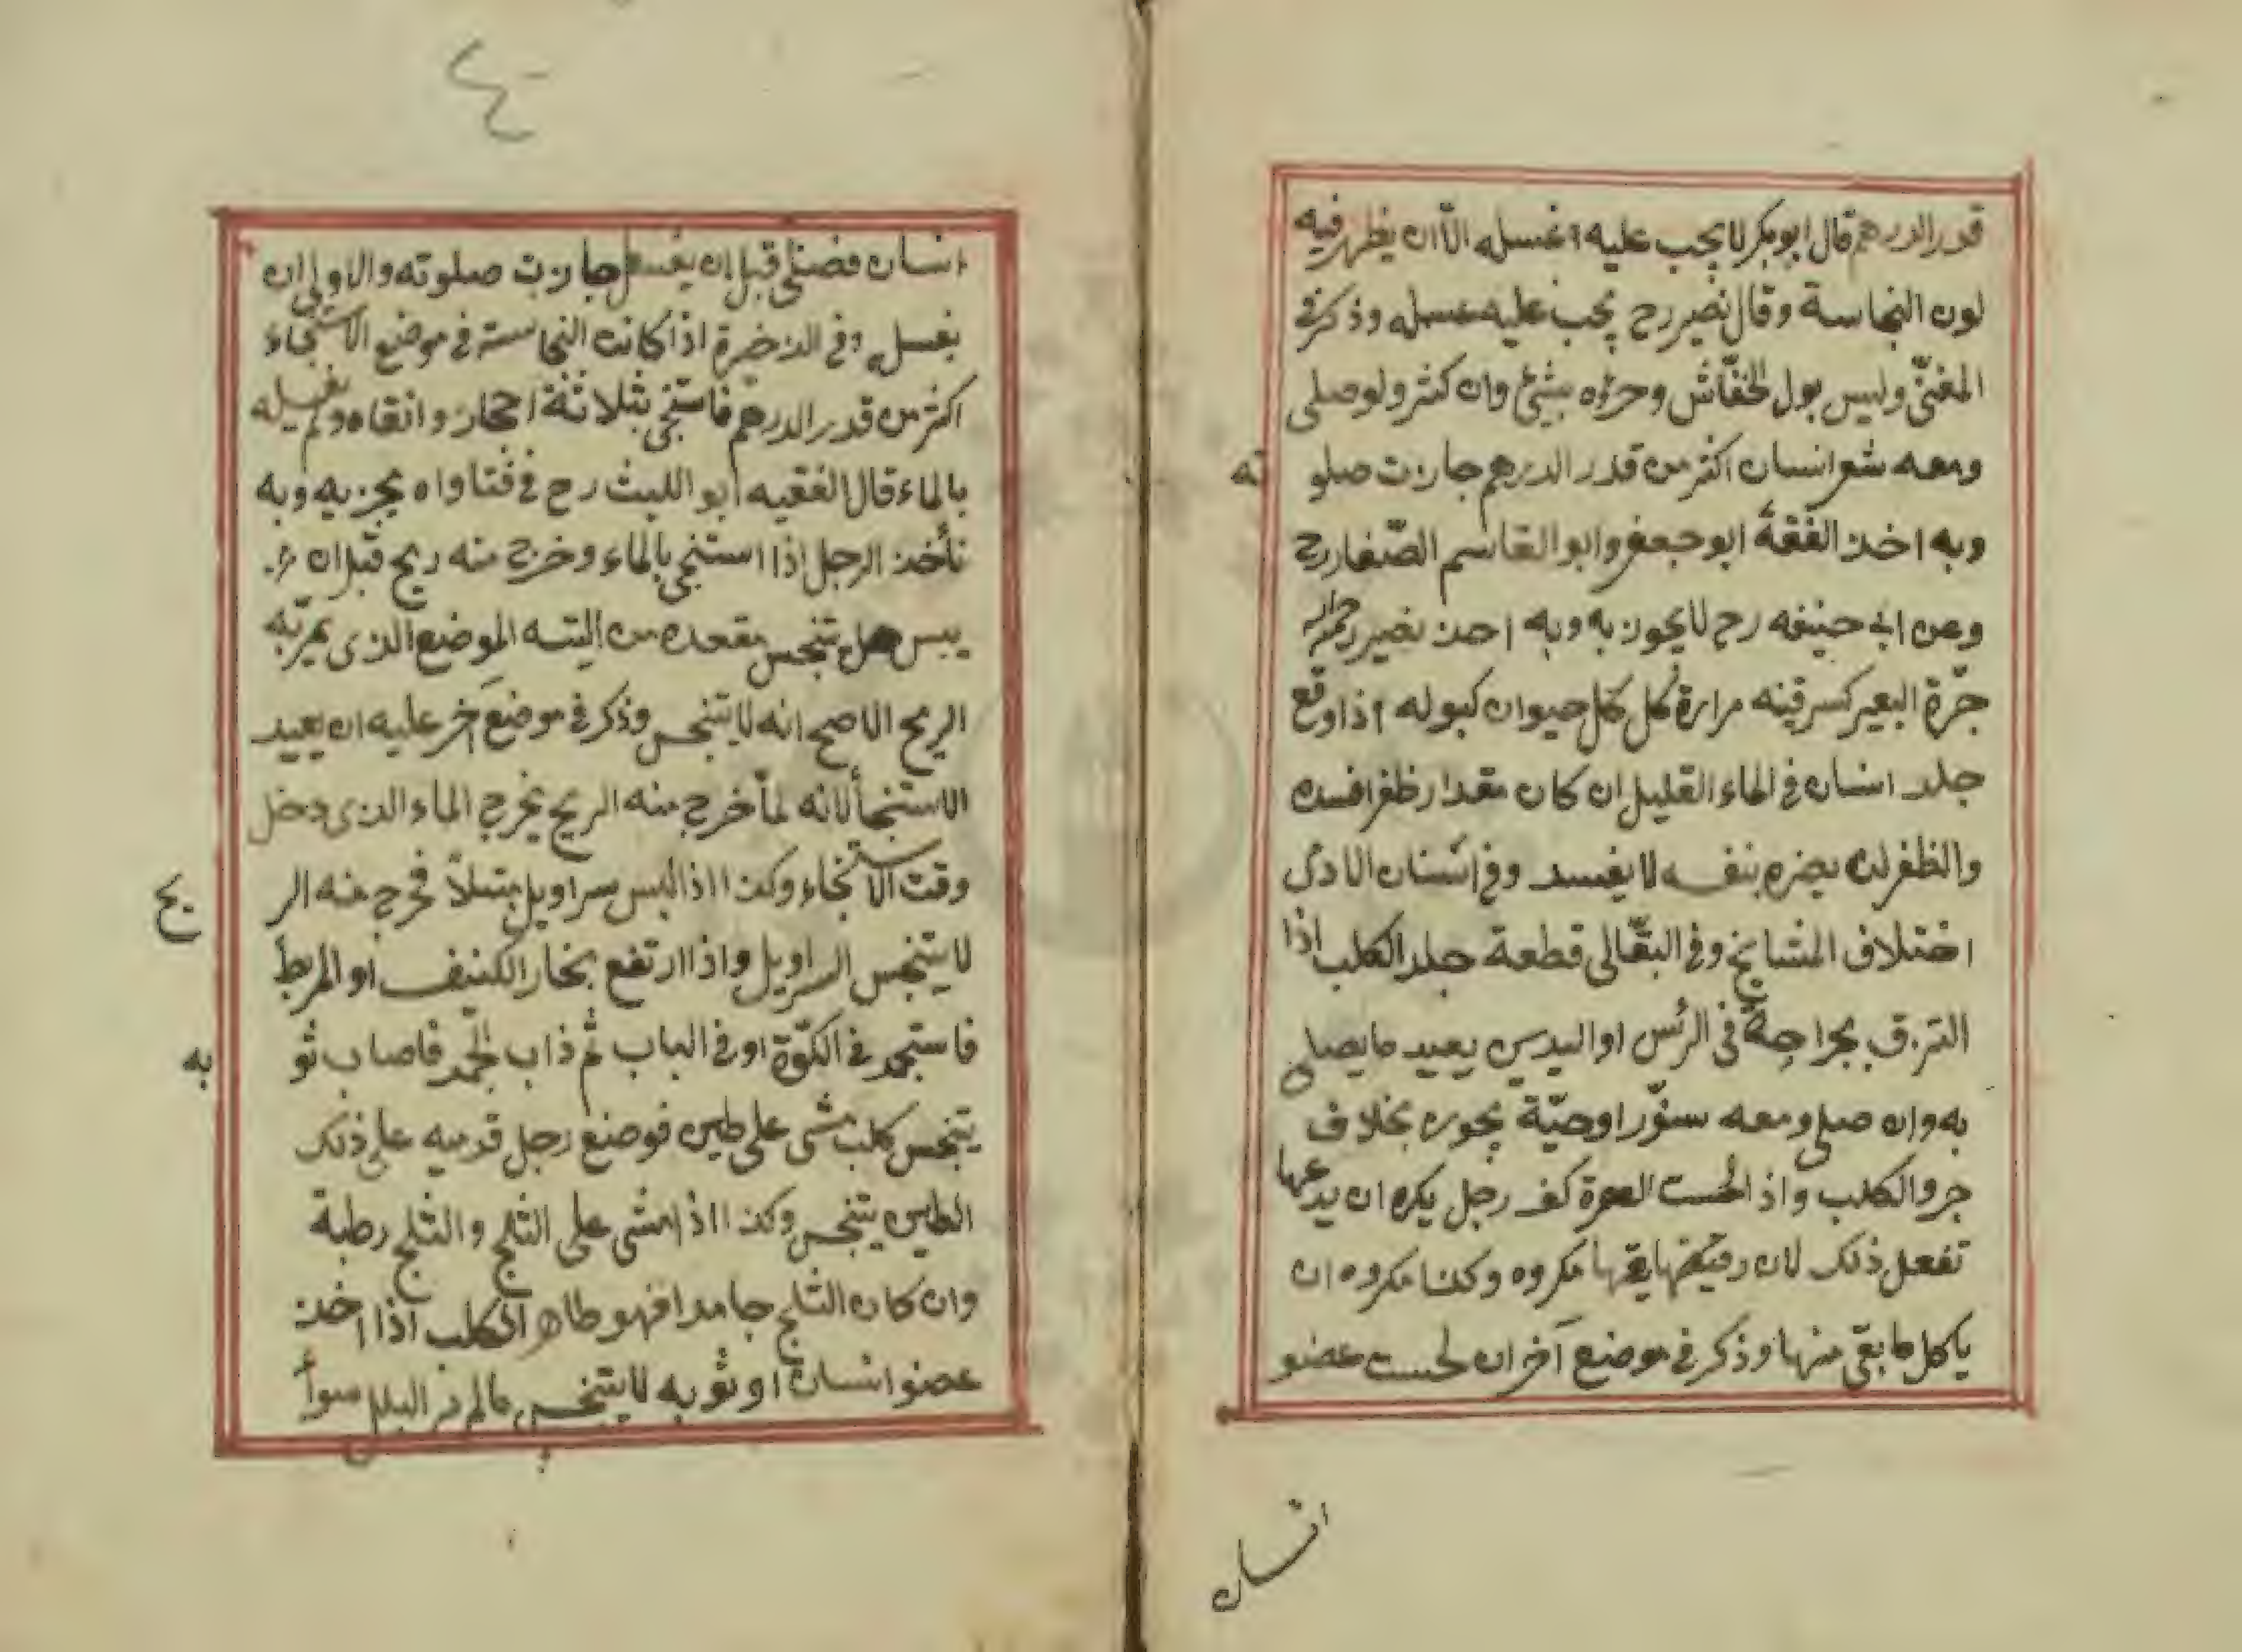 قدر الدرهم قال ابو بكر لا يجب عليه اغسله الّا ان يظهر فيه
لون النجاسة وقال نصير رح يجب عليه غسله وذكر في
المغنىّ وليس بول الخفّاش وخرؤه بشئ وان كثر ولو صلى
ومعه شعر انسان اكثر من قدر الدرهم جازت صلو
ته
وبه اخذ الفقة ابو جعفر وابو القاسم الصّفار رح
وعن ابى حنيفه رح لا يجوز به وبه اخذ نصير رحمه الله
جرّة البعير كسرقينه مرارة كل كل حيوان كبوله اذا وقع
جلد انسان في الماء القليل ان كان مقدار ظفر افسده
والظفر لا يفسد وفي اسنان الادمى
اختلاف المشايخ وفي البقّالى قطعة جلد الكلب اذا
التزق بجراحة في الرئس او اليدين يعيد ما يصلى
به وان صلى ومعه سنوّر او حيّة يجوز بخلاف
جرو الكلب واذا لحست الهرة كف رجل يكره ان يدعها
تفعل ذلك لان ريقها مكروه وكذا مكروه ان
ياكل ما بقى منها وذكر في موضع آخر ان لحست عضو
انسان
٤
انسان فصلى قبل ان يغسل جازت صلوته والاولى ان
يغسل وفي الذخيرة اذا كانت النجاسة في موضع الاستنجاء
اكثر من قدر الدرهم فاستنجى بثلاثة احجار وانقاه ولم يغسله
بالماء قال الفقيه ابو الليث رح في فتاواه يجزيه وبه
نأخذ الرجل اذا استنجى بالماء وخرج منه ريح قبل ان
ييبس هل يتنجس مقعده من اليته الموضع الذى يمر به
الريح الاصح انه لا يتنجس وذكر في موضع آخر عليه ان يعيد
الاستنجأ لانه لماّ خرج منه الريح يخرج الماء الذى دخل
وقت الاستنجاء وكذا اذا لبس سراويل مبتلاً فخرج منه الر
يح
لا يتنجس السراويل واذا ارتفع بخار الكنيف او المربط
فاستجمد في الكوّة او في الباب ثم ذاب الجمد فاصاب ثو
به
يتنجس كلب مشى على طين فوضع رجل قدميه على ذلك
الطين يتنجس وكذا اذا مشى على الثلج والثلج رطبة
وان كان الثلج جامدا فهو طاهر الكلب اذا اخذ
عضو انسان او ثوبه لا يتنجس ما لم ير البلل سوأ